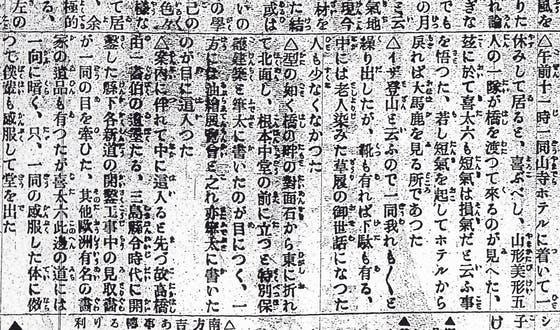 風を
れ論
いな
でも
の月
と云
氣地
現今
材を
威は
た結
の學
色々
已の
樣な
て居
、余
極的
左の
△午前十一時一同山寺ホテルに着いて一シ
休みして居ると、喜ぶべし、山形美形五
人の一隊が橋を渡つて來るのが見へた、
玆に於て喜太六も短氣は損氣だと云ふ事
を悟つた、若し短氣を起してホテルから
戻れば大馬鹿を見る所であつた
△イザ登山と云ふので一同我れも〱と
繰り出したが、靴も有れば下駄も有る、
中には老人染みた草履の御世話になつた
人も少なくなかつた
△型の如く橋の畔の對面石から東に折れ
て北面し、根本中堂の前に立つと特別保
護建築と筆太に書いたのが目につく、一
方には油繪展覽會と之れ亦筆太に書いた
のが目に這入つた
△案内に伴れて中に這入ると先づ故高橋
由一畵伯の遺墨たる、三島縣令時代に開
鑿した縣下各新道の開鑿工事中の見取畵
が一同の目を牽ひた、其他歐洲有名の畵
家の遺品も有つたが喜太六此邊の道には
一向に暗く、只、一同の感服した体に倣
つて僕輩も感服して堂を出た
子
け